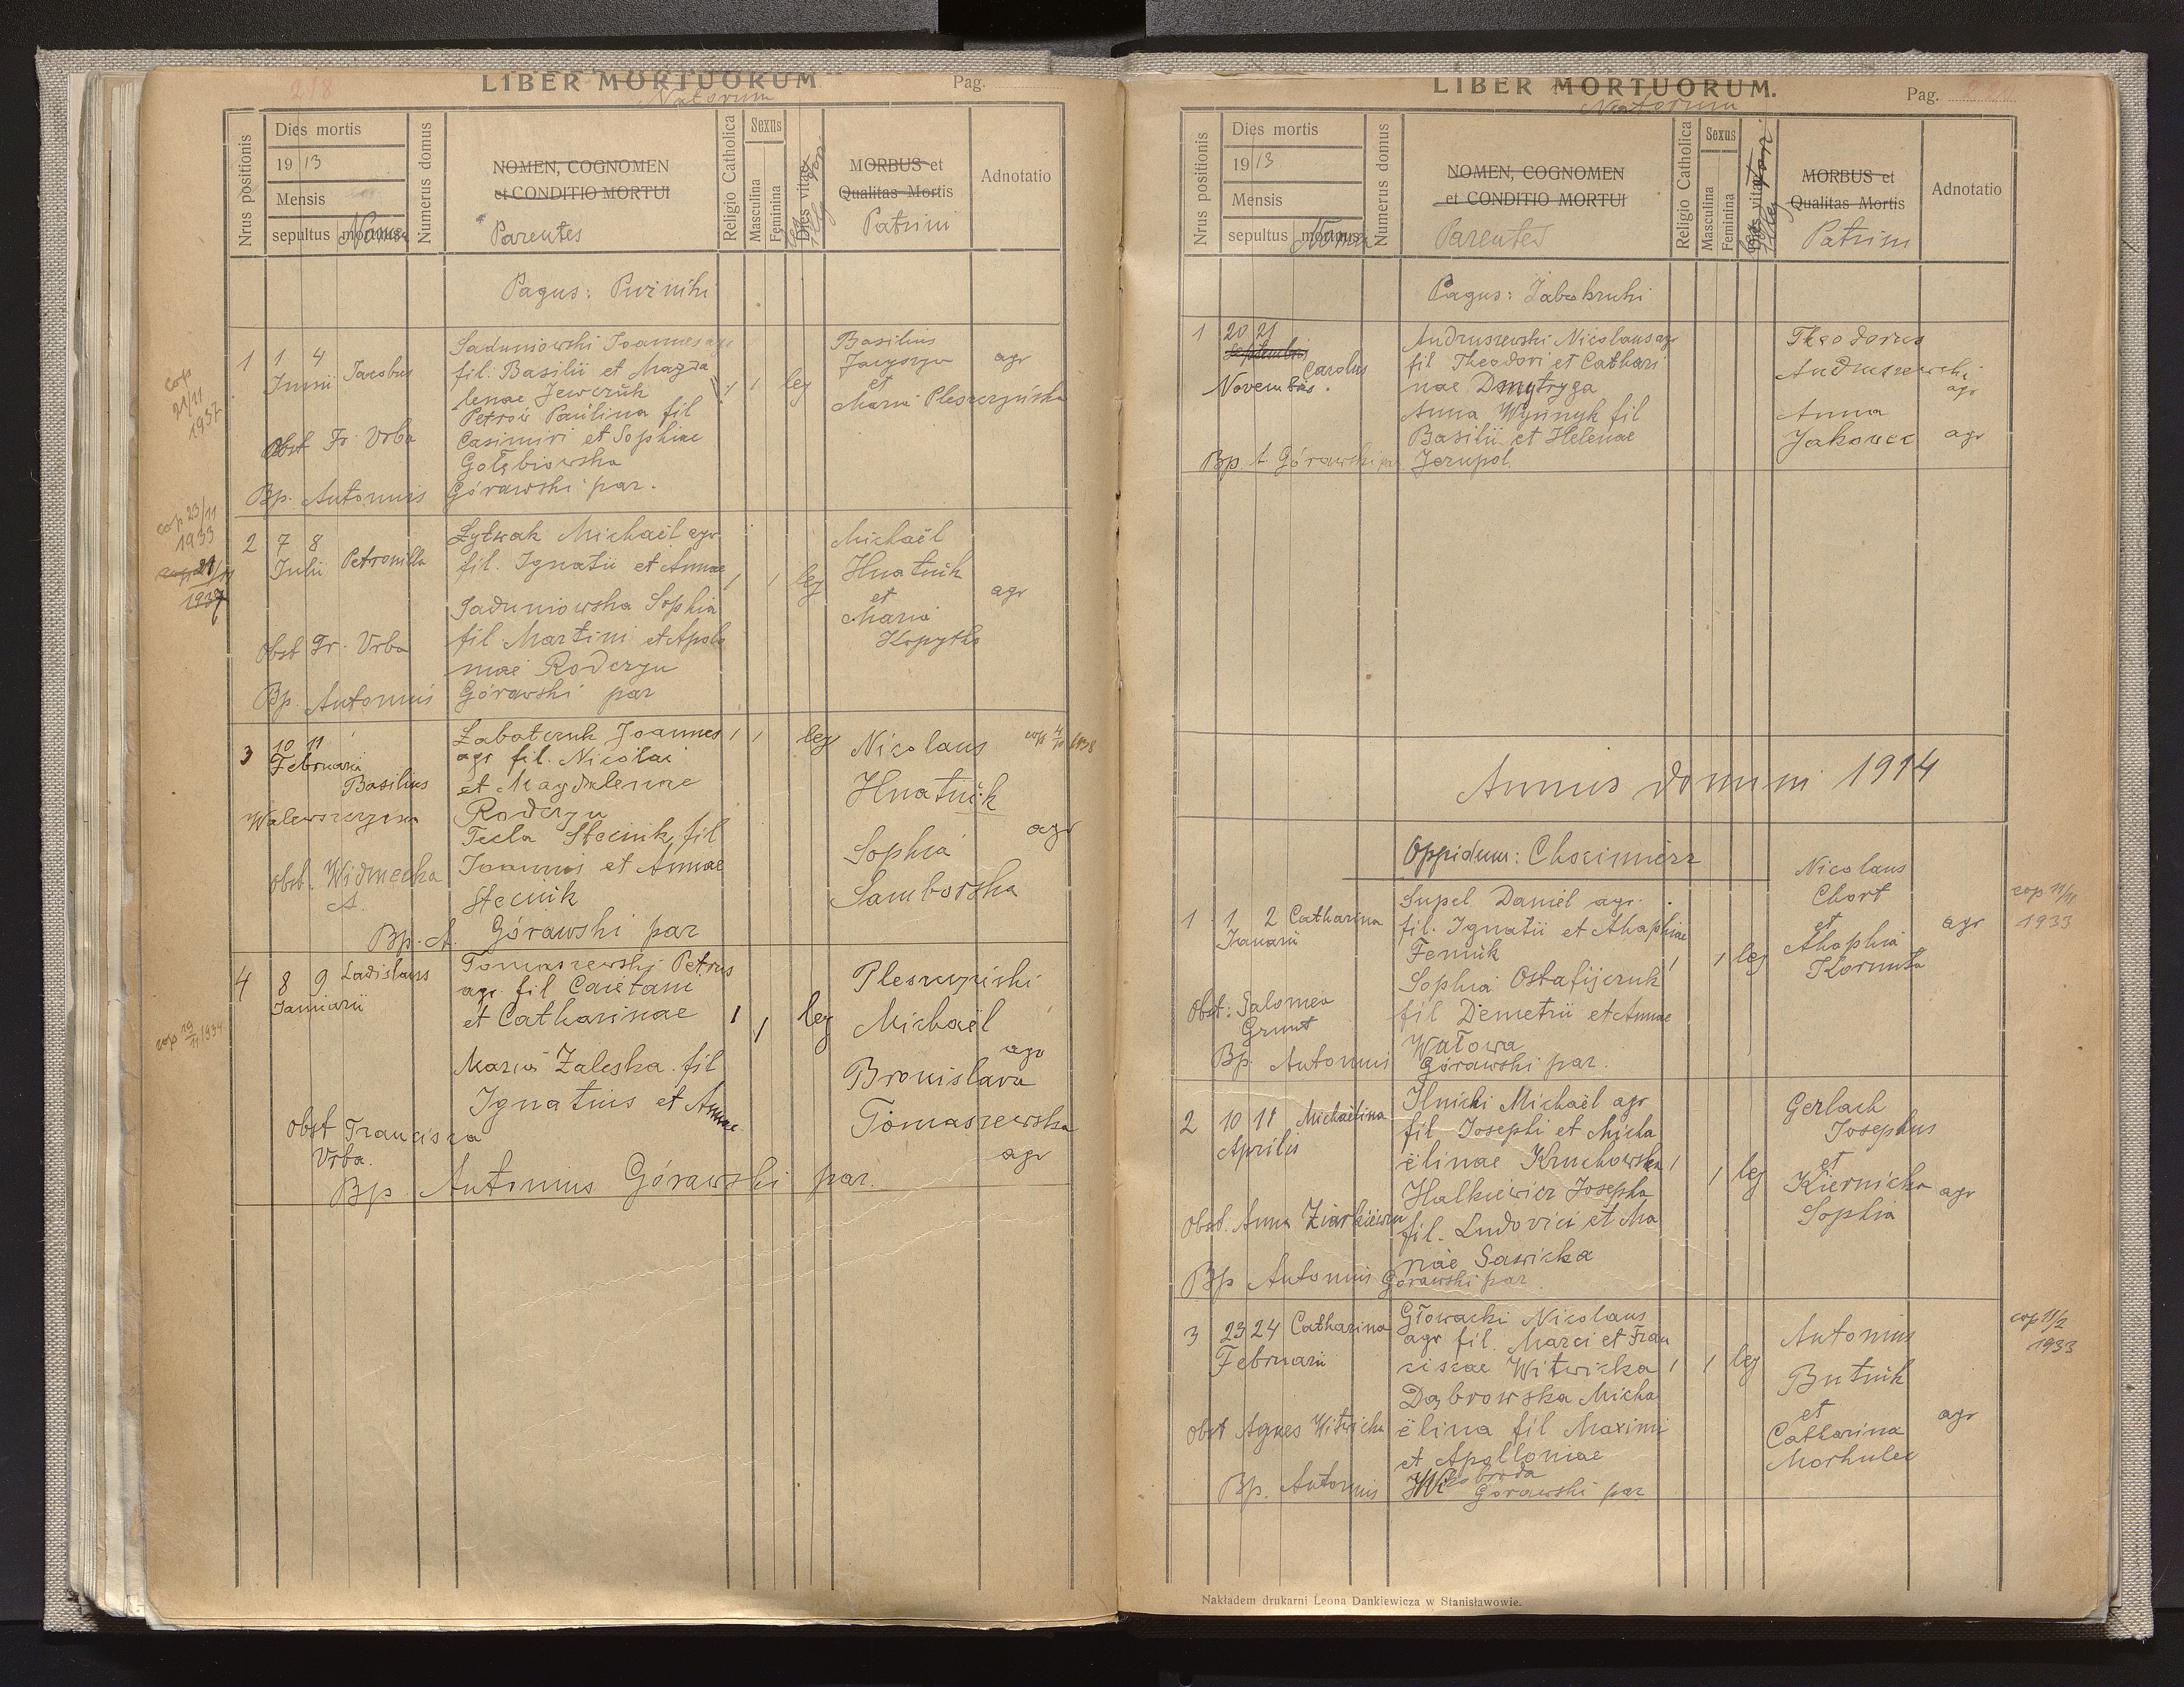 218
LIBER MORTUORUM
Natorum
Pag.
Nrus positionis
Dies mortis
1913
Mensis
sepultus mortuus
Nomen
Numerus domus
NOMEN, COGNOMEN
et CONDITIO MORTUI
Parentes
Religio Catholica
Sexus
Masculina
Feminina
Dies vitae
MORBUS et
Qualitas Mortis
Patrini
Adnotatio
Pagus: Puźniki
cop
21/11
1937
1 1 4
Junii Jacobus
Obst Fr. Vrba
Bp. Antonius Górawski par.
Saduniowski Joannes agr
fil. Basilii et Magda
lenae Jewczuk
Petrów Paulina fil
Casimiri et Sophiae
Gołębiowska
1 1 leg
Basilius
et
Maria Pleszczyńska
agr
cop 23/11
1933
2 7 8
Julii Petronilla
Obst Fr. Vrba
Bp. Antonius Górawski par
Łytwak Michaël agr
fil. Ignatii et Annae
Saduniowska Sophia
fil Martini et Apolo
niae Roderzu
1 1 leg
Michaël
Hnatiuk
et
Maria
Kopytko
agr
3 10 11
Februarii
Basilius
obst. Widniecka
A.
Bp. A. Górawski par
Łabatczuk Joannes
agr fil. Nicolai
et Magdalenae
Roderzu
Tecla Steciuk fil
Joannis et Annae
Steciuk
1 1 leg
Nicolaus
Hnatiuk
agr
Sophia
Samborska
cop 4/11 1938
4 8 9 Ladislaus
Januarii
cop 19/11 1934
Tomaszewski Petrus
agr. fil Caietani
et Catharinae
Maria Zaleska fil
Ignatius et Annae
Obst Francisca
Vrba.
Bp Antonius Górawski par.
1 1 leg
Pleszczyński
Michaël
agr
Bronislava
Tomaszewska
agr
LIBER MORTUORUM.
Natorum
Pag.
Nrus positionis
Dies mortis
1913
Mensis
sepultus mortuus
Nomen
Numerus domus
NOMEN, COGNOMEN
et CONDITIO MORTUI
Parentes
Religio Catholica
Sexus
Masculina
Feminina
Dies vitae
MORBUS et
Qualitas Mortis
Patrini
Adnotatio
Pagus: Żabokruki
1 20 21
Septembris
Carolus
Novembris.
Bp. A. Górawski par
Andruszewski Nicolaus agr
fil Theodori et Cathari
nae Dmytryga
Anna Wynnyk fil
Basilii et Helenae
Jezupol.
Theodorus
Andruszewski
agr
Anna
Jakowec agr
Annus domini 1914
Oppidum: Chocimierz
1 1 2 Catharina
Januarii
Obst: Salomea
Grunt
Bp. Antonius Górawski par.
Supel Daniel agr.
fil. Ignatii et Ahaphiae
Feniuk
Sophia Ostafijczuk
fil Demetrii et Annae
Watowa
1 1 leg
Nicolaus
Chort
et
Ahaphia
Kormuta
agr
cop 11/11
1933
2 10 11 Michaëlina
Aprilis
Obst. Anna Ziarkiewicz
Bp Antonius Górawski par.
Ilnicki Michaël agr
fil Josephi et Micha
ëlinae Kruchowska
Halkiewicz Josepha
fil. Ludovici et Ma
riae Sawicka
1 1 leg
Gerlach
Josephus
et
Kiernicka
Sophia
agr
3 23 24 Catharina
Februarii
Obst Agnes Witwicka
Bp. Antonius Górawski par
Głowacki Nicolaus
agr fil. Marci et Fran
ciscae Witwicka
Dąbrowska Micha
ëlina fil Maximi
et Apolloniae
1 1 leg
Antonius
Butiuk
et
Catharina
Morhulec
agr
cop 11/2
1933
Nakładem drukarni Leona Dankiewicza w Stanisławowie.